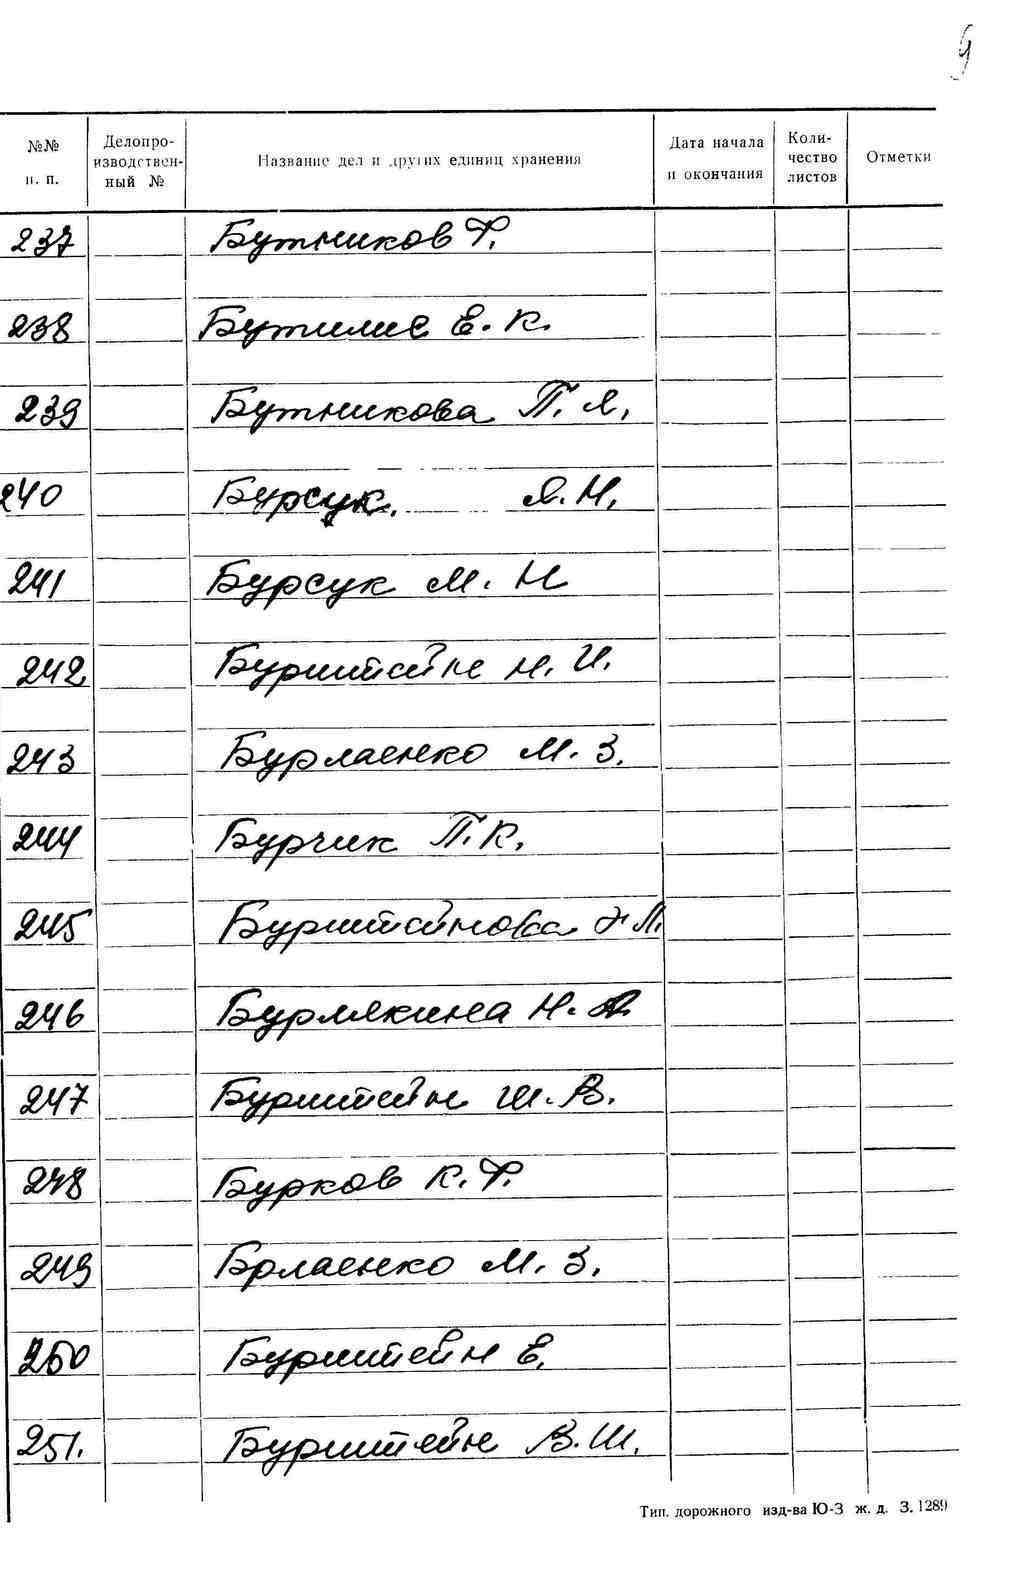 9
№№ п. п. Делопроизводственный № Название дел и других единиц хранения Дата начала и окончания Количество листов Отметки
237 Бутников Ф.
238 Бутилие Е. К.
239 Бутникова П. Я.
240 Бурсук. Я. Н.
241 Бурсук М. Н
242 Бурштейн Н. И.
243 Бурлаенко М. З.
244 Бурчик П. К.
245 Бурштейнова Л.
246 Бурмякина Н. А.
247 Бурштейн Ш. В.
248 Бурков К. Ф.
249 Брлаенко М. З.
250 Бурштейн Е.
251. Бурштейн В. Ш.
Тип. дорожного изд-ва Ю-З ж. д. З. 1289